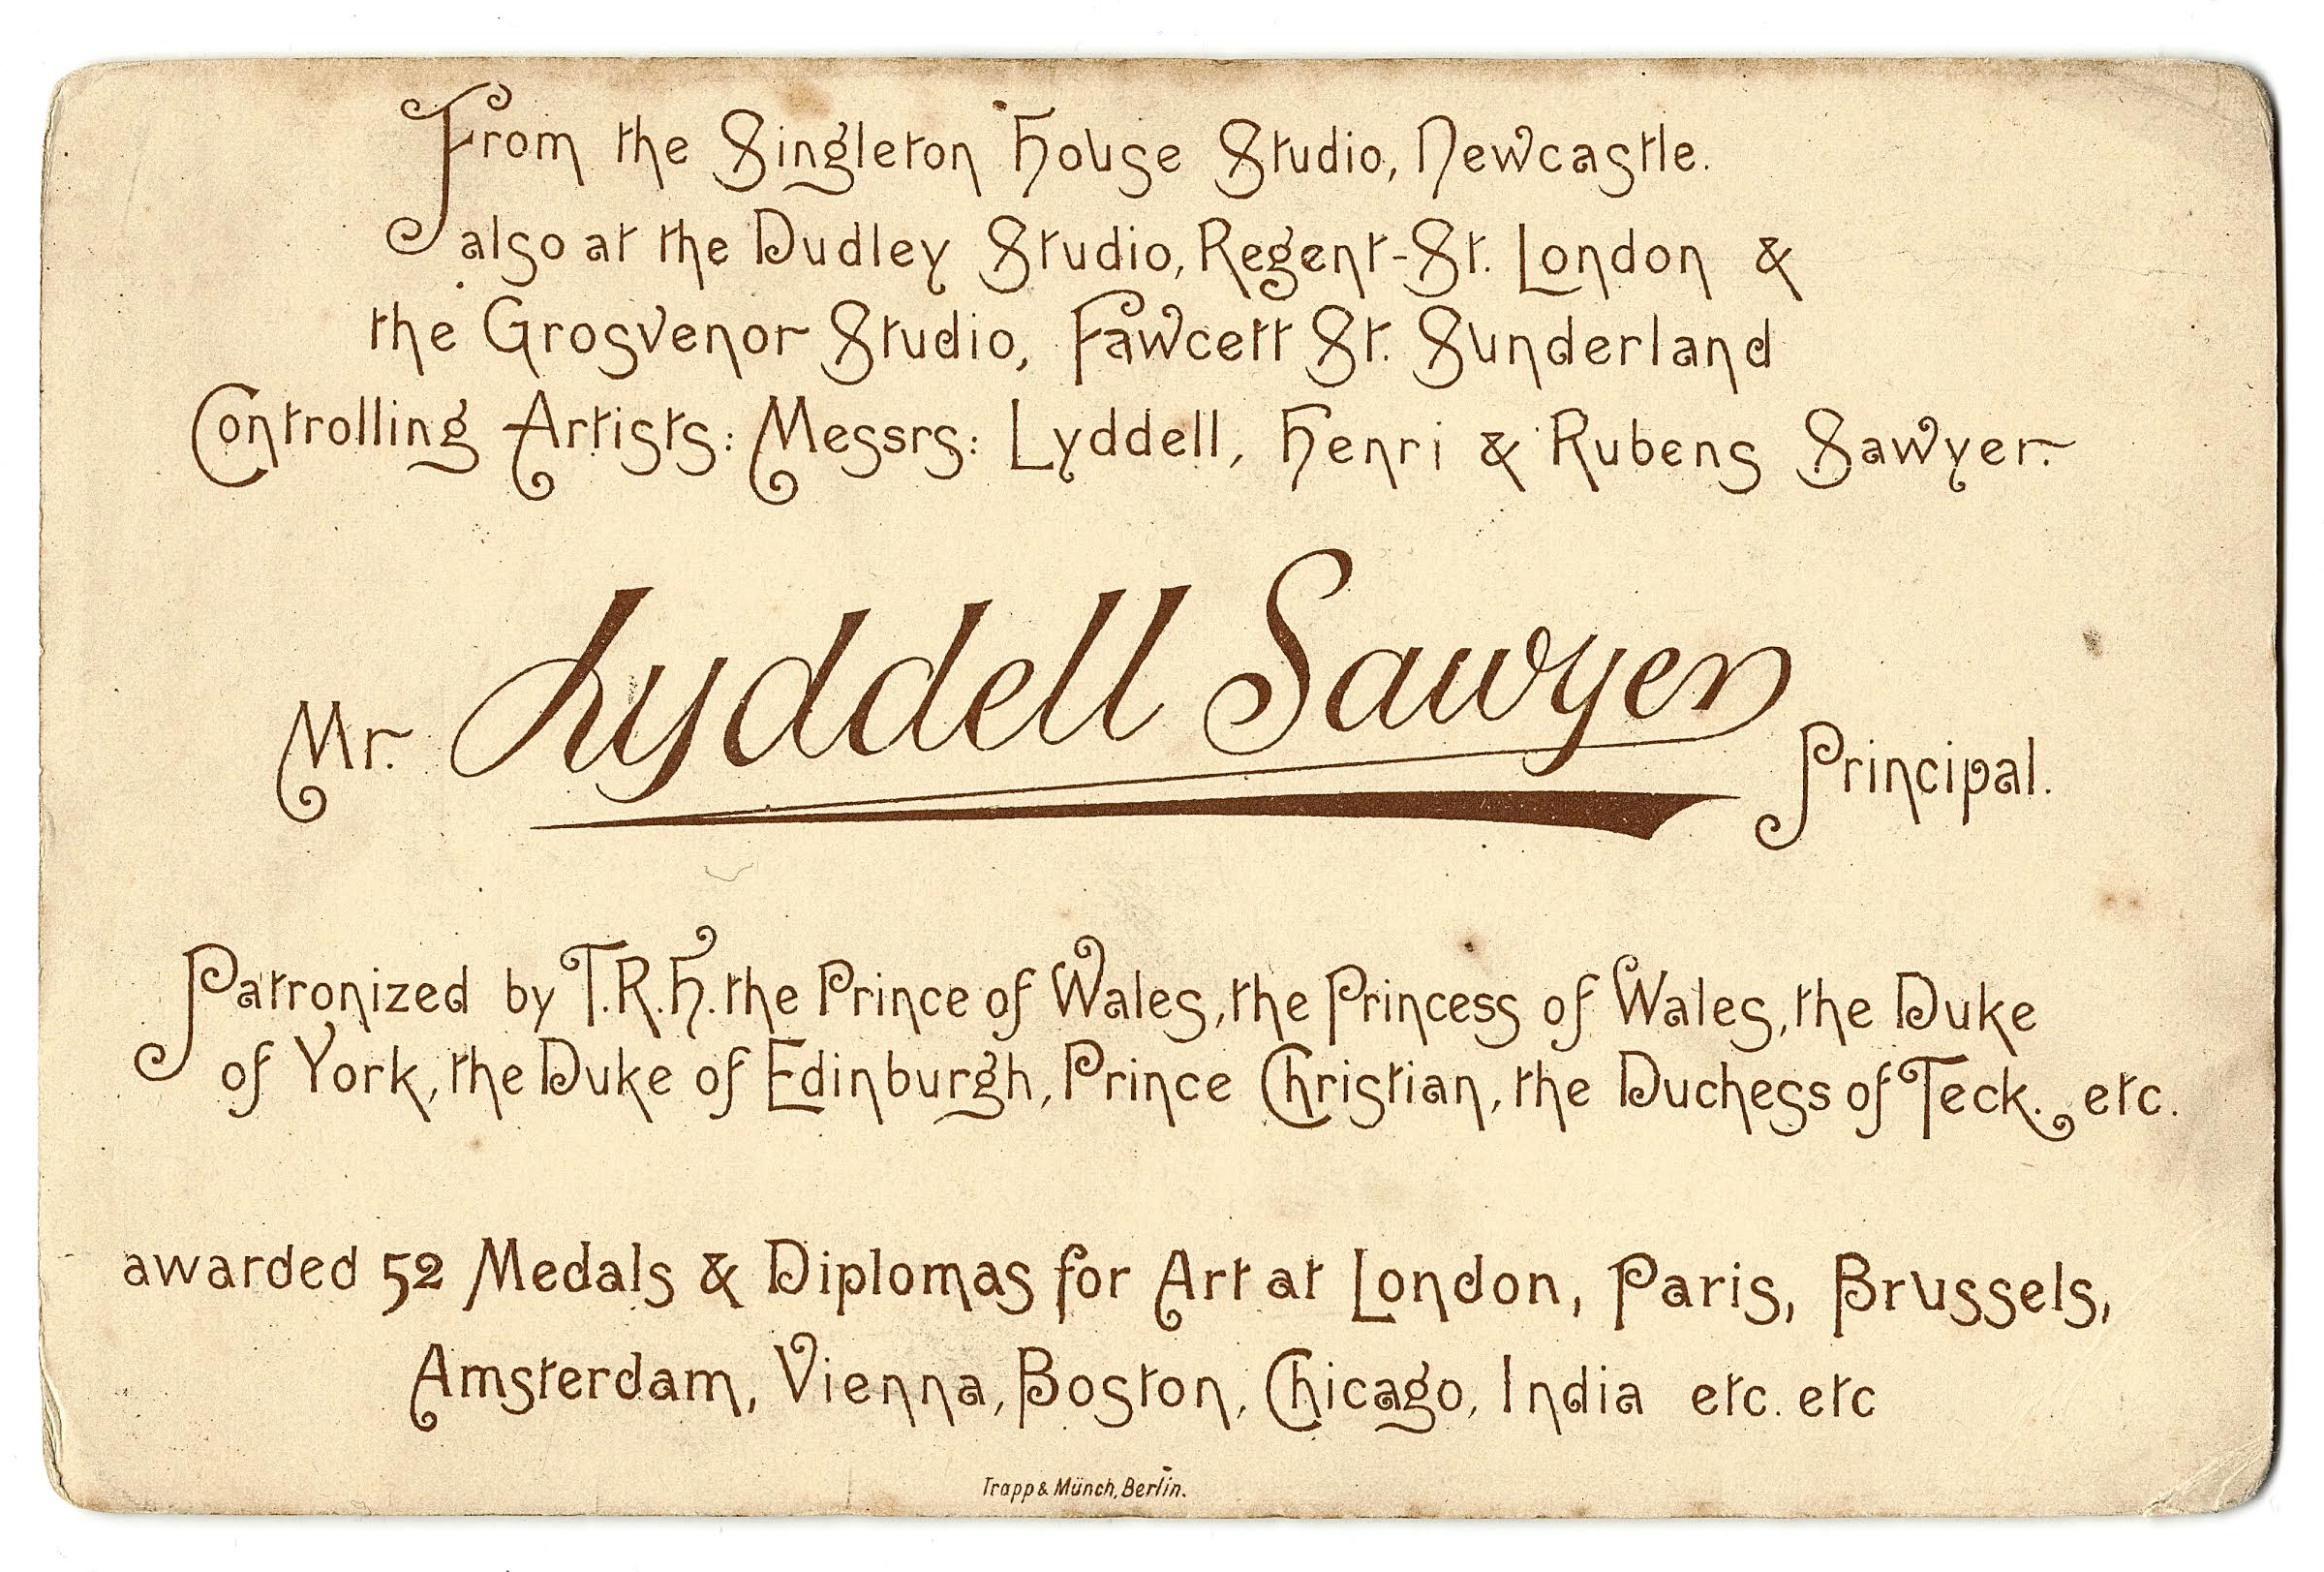 From the Singleton House Studio, Newcastle.
also at the Dudley Studio, Regent-St. London &
the Grosvenor Studio, Fawcett St. Sunderland
Controlling Artists: Messrs: Lyddell, Henri & Rubens Sawyer.
Mr. Lyddell Sawyer Principal.
Patronized by T.R.H. the Prince of Wales, the Princess of Wales, the Duke
of York, the Duke of Edinburgh, Prince Christian, the Duchess of Teck. etc.
awarded 52 Medals & Diplomas for Art at London, Paris, Brussels,
Amsterdam, Vienna, Boston, Chicago, India etc. etc
Trapp & Münch, Berlin.